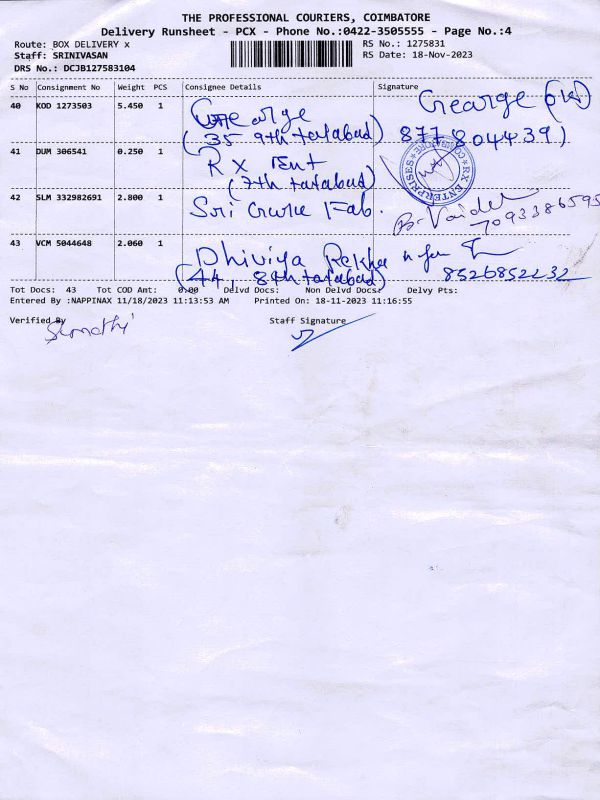 THE PROFESSIONAL COURIERS, COIMBATORE
Delivery Runsheet - PCX - Phone No.:0422-3505555 - Page No.:4
Route: BOX DELIVERY x
RS No.: 1275831
Staff: SRINIVASAN
RS Date: 18-Nov-2023
DRS No.: DCJB127583104
S No Consignment No Weight PCS Consignee Details Signature
40 KOD 1273503 5.450 1 George George
(35 9th tatabad)
41 DUM 306541 0.250 1 Rx Ent
(7th tatabad)
RX ENTERPRISES COIMBATORE
42 SLM 332982691 2.800 1 Sri Fab.
7093386595
43 VCM 5044648 2.060 1 Dhiviya Rekha
(44, 8th tatabad) 8526852232
Tot Docs: 43 Tot COD Amt: 0.00 Delvd Docs: Non Delvd Docs: Delvy Pts:
Entered By :NAPPINAX 11/18/2023 11:13:53 AM Printed On: 18-11-2023 11:16:55
Verified By Staff Signature